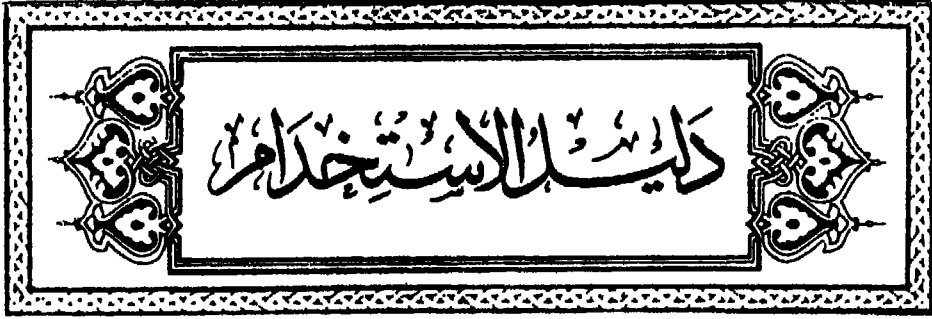 دَليل الاستِخدَام